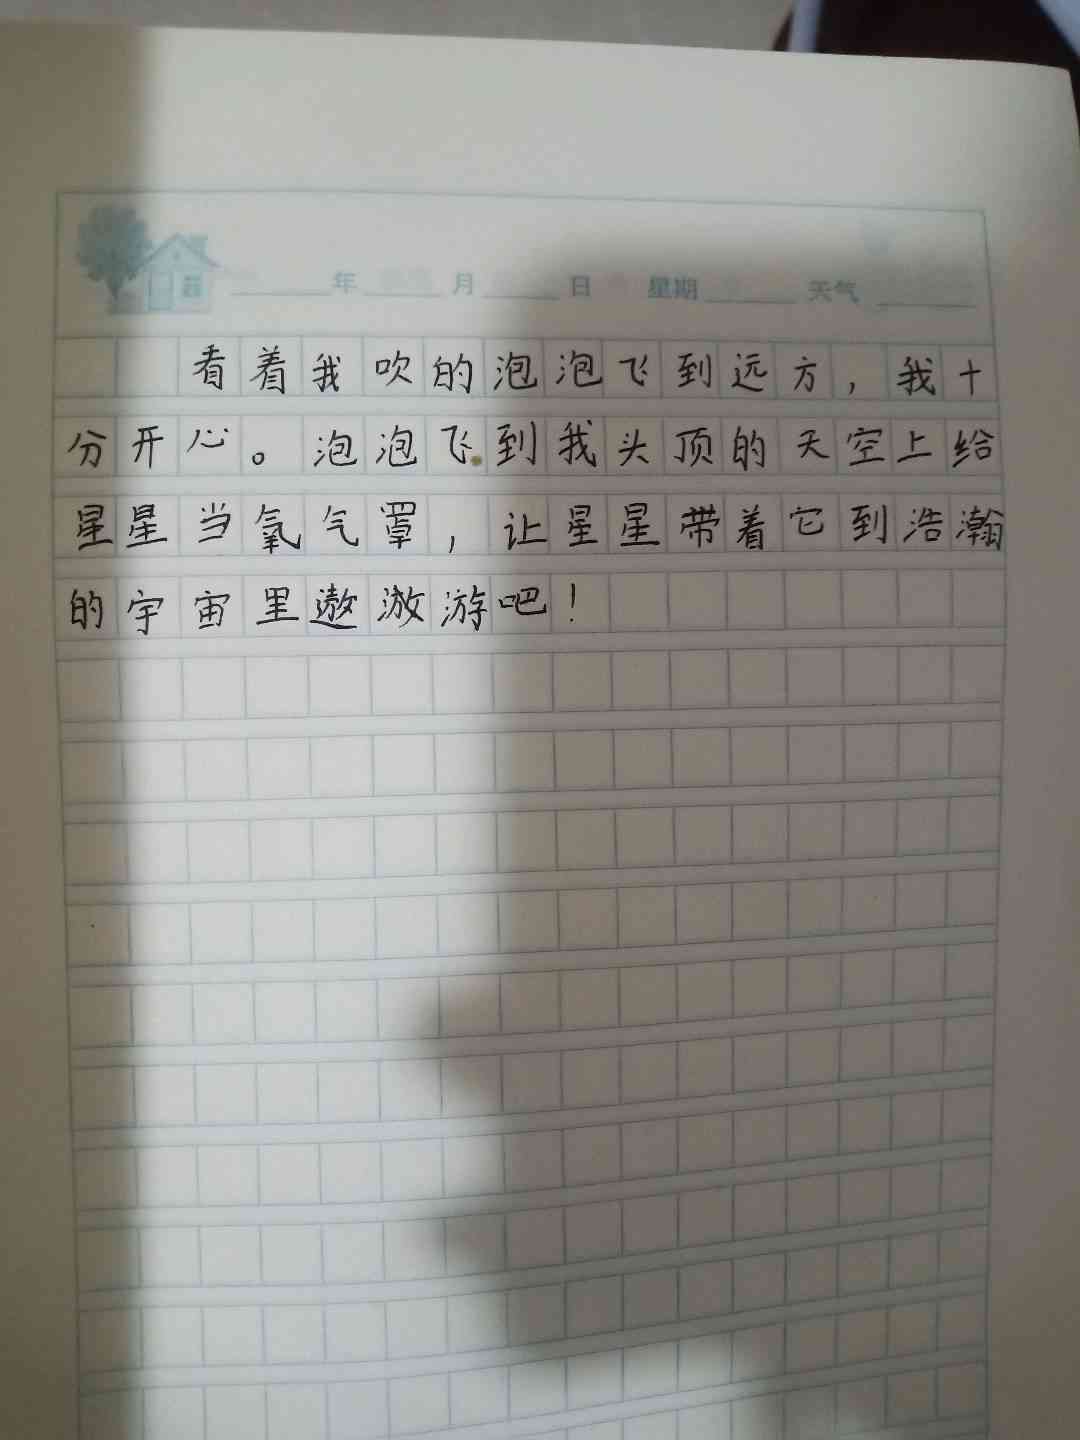 年 月 日 星期 天气
看着我吹的泡泡飞到远方，我十
分开心。泡泡飞到我头顶的天空上给
星星当氧气罩，让星星带着它到浩瀚
的宇宙里遨游吧！